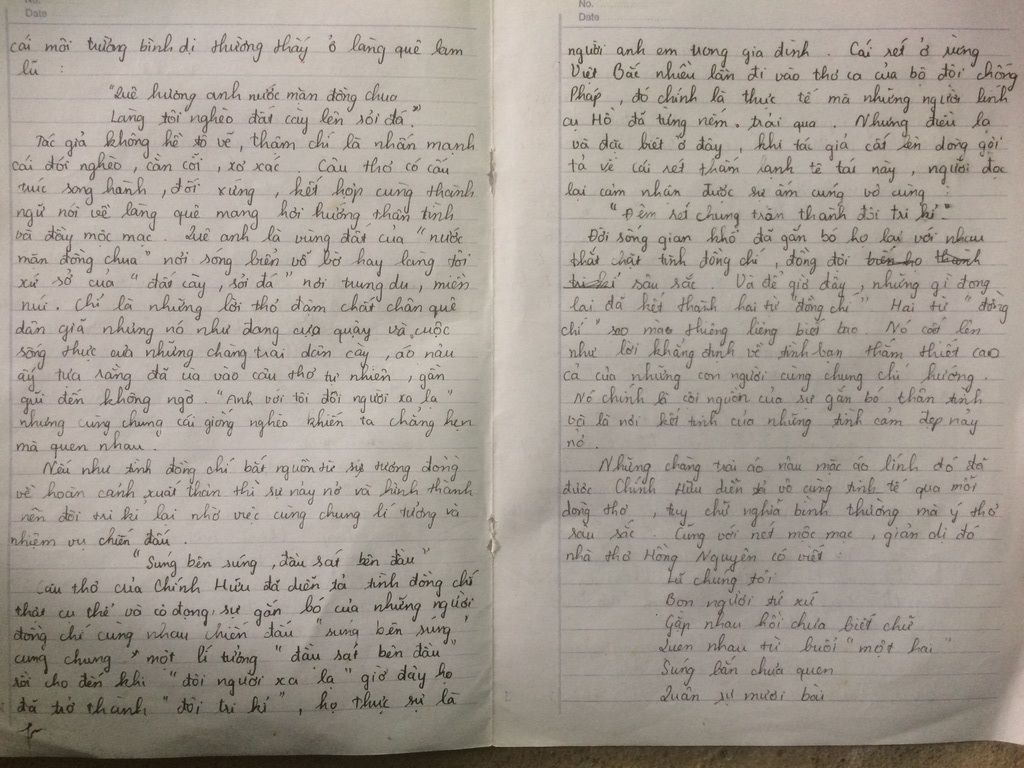 No.
Date
cái môi trường bình dị thường thấy ở làng quê lam
lũ :
"Quê hương anh nước mặn đồng chua
Làng tôi nghèo đất cày lên sỏi đá."
Tác giả không hề tô vẽ, thậm chí là nhấn mạnh
cái đói nghèo, cằn cỗi, xơ xác Câu thơ có cấu
trúc song hành, đối xứng, kết hợp cùng thành
ngữ nói về làng quê mang hơi hướng thân tình
và đầy mộc mạc. Quê anh là vùng đất của "nước
mặn đồng chua" nơi song biển vỗ bờ hay làng tôi
xứ sở của "đất cày, sỏi đá" nơi trung du, miền
núi. Chỉ là những lời thơ đậm chất chân quê
dân giã nhưng nó như đang cựa quậy và cuộc
sống thực của những chàng trai dân cày, áo nâu
ấy tựa rằng đã ùa vào câu thơ tự nhiên, gần
gũi đến không ngờ. "Anh với tôi đôi người xa lạ"
nhưng cùng chung cái giống nghèo khiến ta chẳng hẹn
mà quen nhau.
Nếu như tình đồng chí bắt nguồn từ sự tương đồng
về hoàn cảnh xuất thân thì sự nảy nở và hình thành
nên đôi tri kỉ lại nhờ việc cùng chung lí tưởng và
nhiệm vụ chiến đấu.
"Súng bên súng, đầu sát bên đầu"
Câu thơ của Chính Hữu đã diễn tả tình đồng chí
thật cụ thể và cô đọng, sự gắn bó của những người
đồng chí cùng nhau chiến đấu "súng bên súng"
cùng chung một lí tưởng "đầu sát bên đầu"
rồi cho đến khi "đôi người xa lạ" giờ đây họ
đã trở thành "đôi tri kỉ", họ thực sự là
No.
Date
người anh em trong gia đình. Cái rét ở rừng
Việt Bắc nhiều lần đi vào thơ ca của bộ đội chống
Pháp, đó chính là thực tế mà những người lính
cụ Hồ đã từng nếm trải qua. Nhưng điều lạ
và đặc biệt ở đây, khi tác giả cất lên dòng gợi
tả về cái rét thấm lạnh tê tái này, người đọc
lại cảm nhận được sự ấm cúng vô cùng :
"Đêm rét chung trăn thành đôi tri kỉ."
Đời sống gian khổ đã gắn bó họ lại với nhau
thắt chặt tình đồng chí, đồng đội biến họ thành
tri kỉ sâu sắc. Và để giờ đây, những gì đọng
lại đã kết thành hai từ "đồng chí" Hai từ "đồng
chí" sao mà thiêng liêng biết bao. Nó cất lên
như lời khẳng định về tình bạn thắm thiết cao
cả của những con người cùng chung chí hướng.
Nó chính là cội nguồn của sự gắn bó thân tình
và là nơi kết tinh của những tình cảm đẹp nảy
nở.
Những chàng trai áo nâu mặc áo lính đó đã
được Chính Hữu diễn tả vô cùng tinh tế qua mỗi
dòng thơ, tuy chữ nghĩa bình thường mà ý thơ
sâu sắc. Cùng với nét mộc mạc, giản dị đó
nhà thơ Hồng Nguyên có viết :
Lũ chúng tôi
Bọn người tứ xứ
Gặp nhau hồi chưa biết chữ
Quen nhau từ buổi "một hai"
Súng bắn chưa quen
Quân sự mươi bài